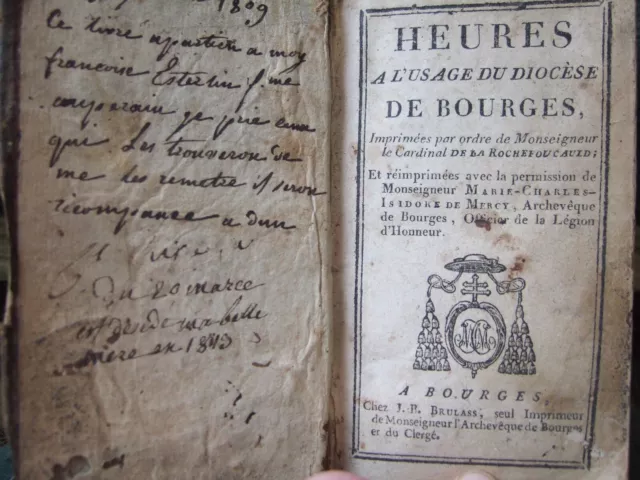 1809
Ce livre apartien a moy
francoise f. me
je prie ceux
qui Les trouveron de
me Les remetre il seron
récompancé a d'un
Du 20 marce
est désédé ma belle
mère en 1843
HEURES
A L'USAGE DU DIOCÈSE
DE BOURGES,
Imprimées par ordre de Monseigneur
le Cardinal DE LA ROCHEFOUCAULD;
Et réimprimées avec la permission de
Monseigneur MARIE-CHARLES-
ISIDORE DE MERCY, Archevêque
de Bourges, Officier de la Légion
d'Honneur.
A BOURGES,
Chez J. B. BRULASS, seul Imprimeur
de Monseigneur l'Archevêque de Bourges
et du Clergé.